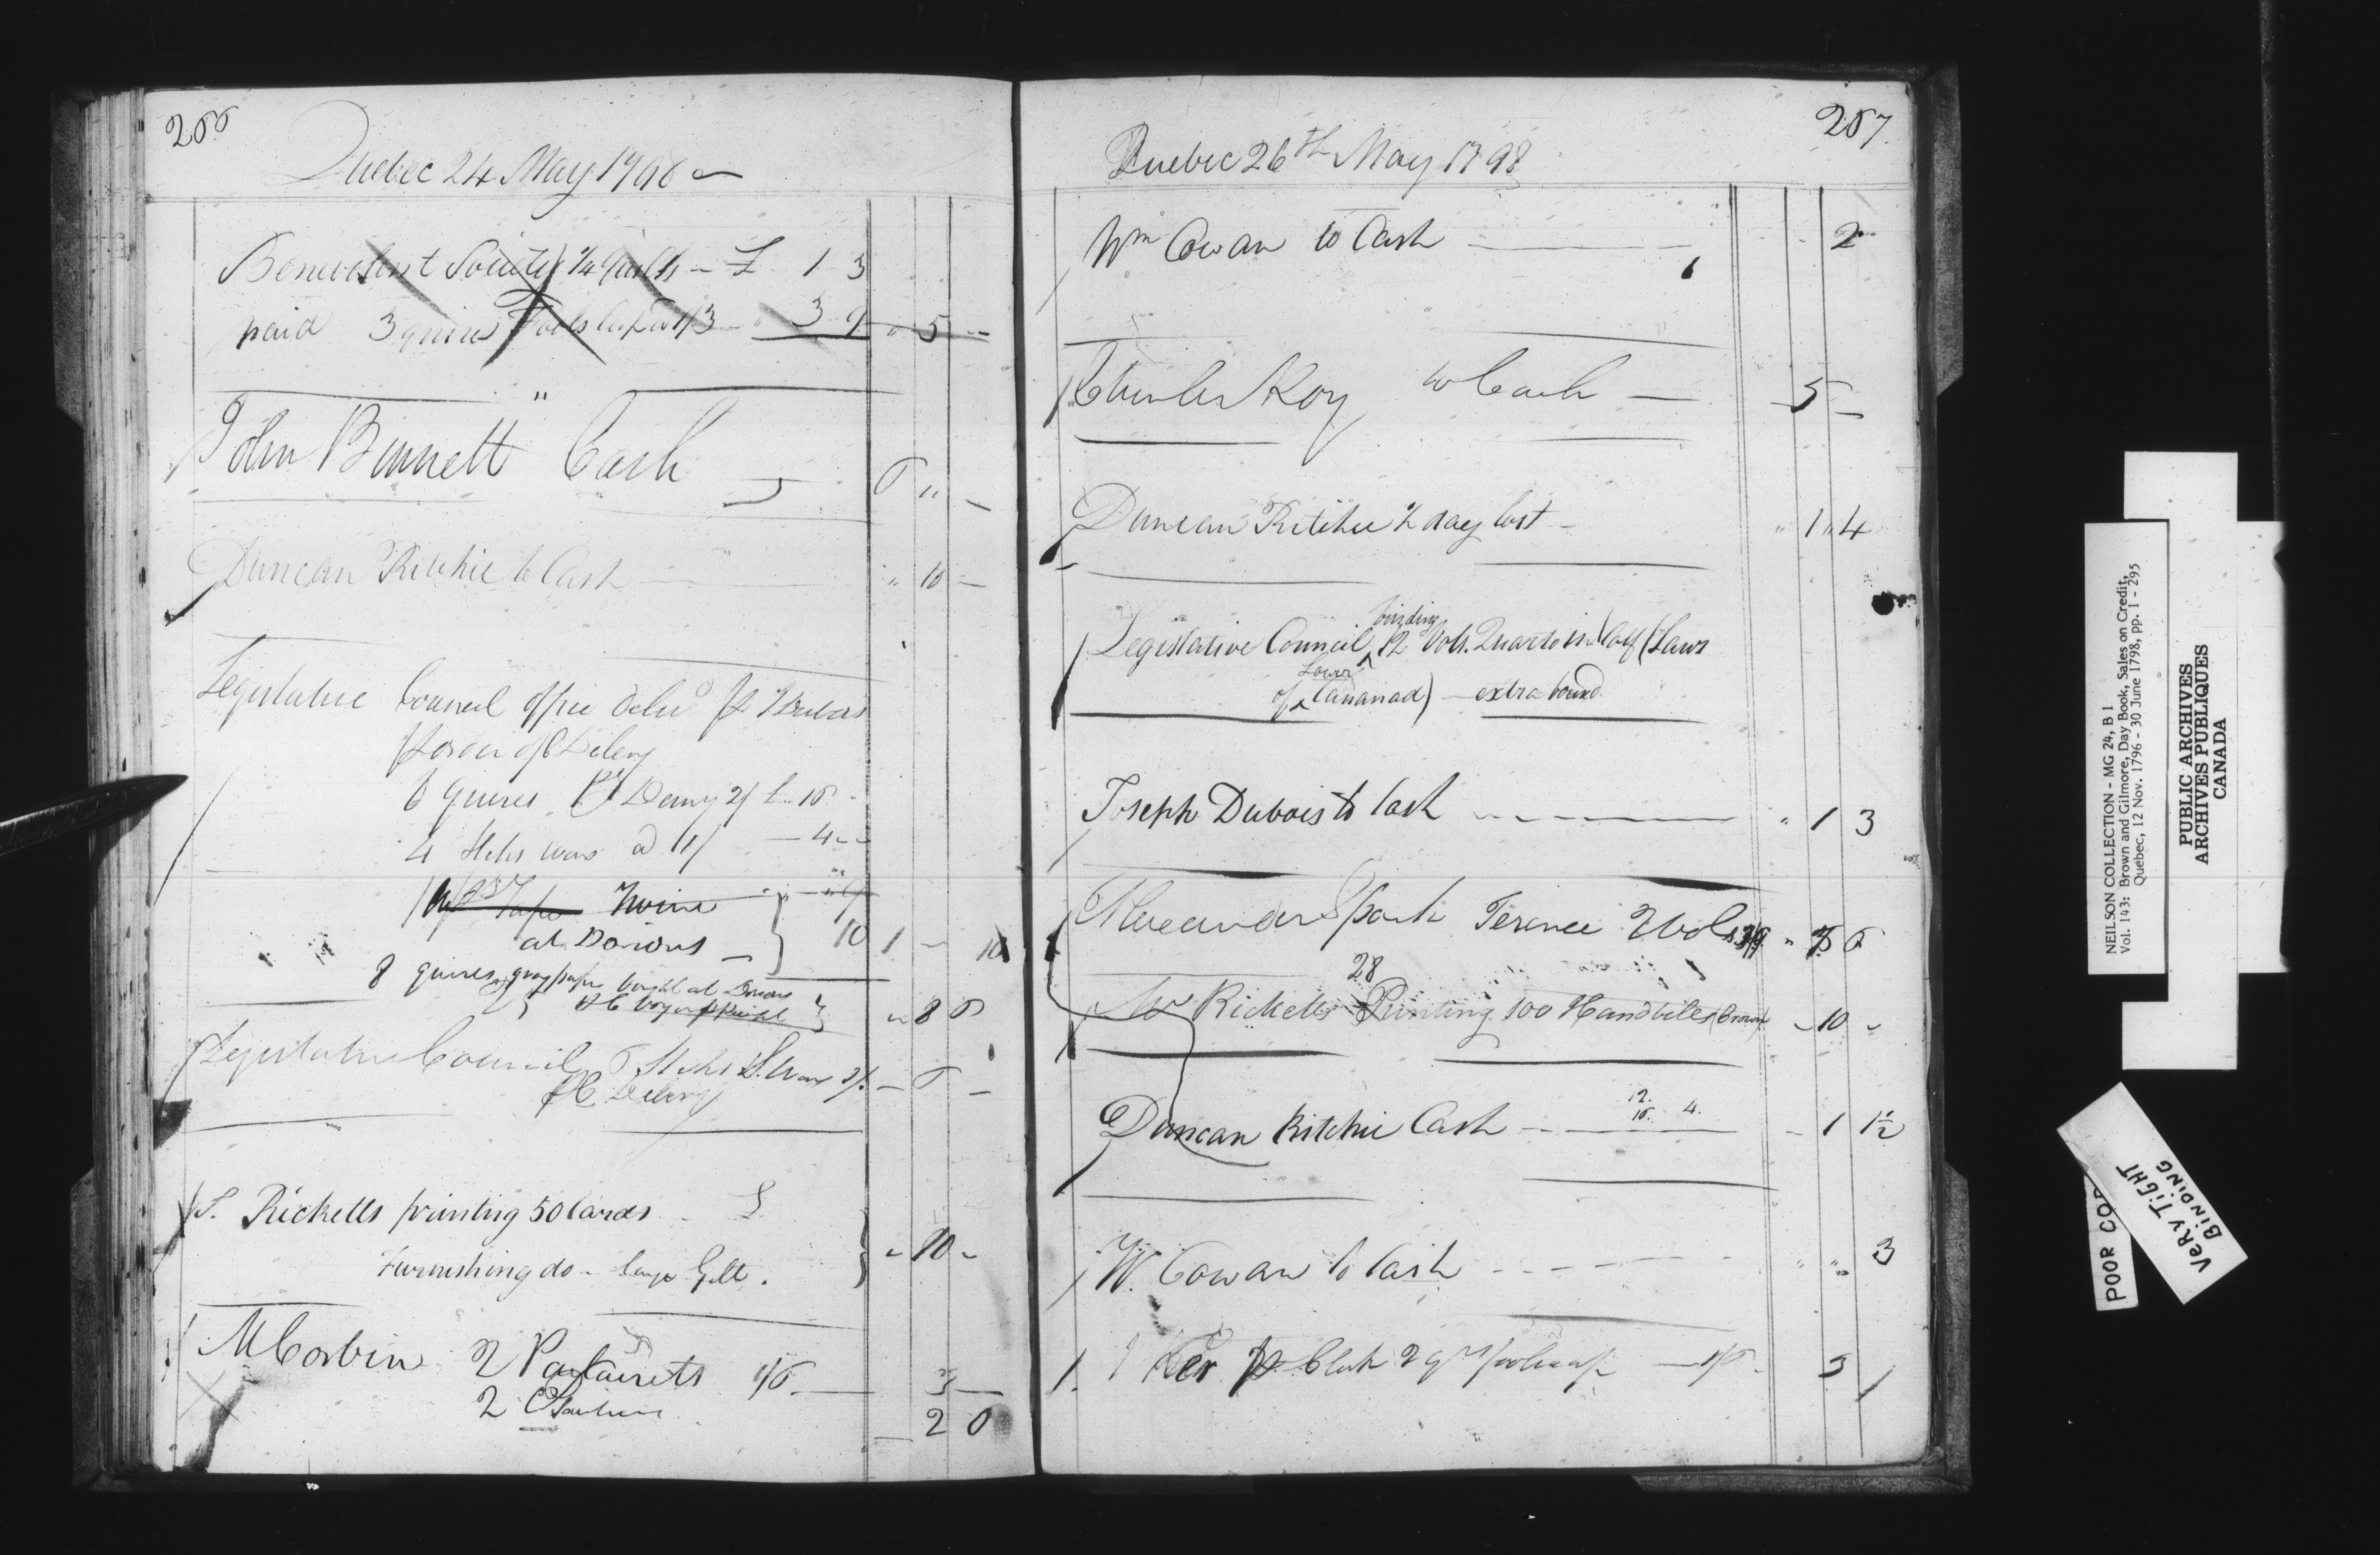 266
Quebec 24 May 1798
Benevolent Society 1/4 Quills - £ 1 3
paid 3 quires Fools Cap @ 1/3 - " 3 9 " 5 -
John Bennett " Cash 6 " -
Duncan Ritchie to Cash " 10 -
Legislative Council office
6 quires Demy 2/
4 Stks wax @ 1/ - 4 -
Tape Twine 9
at Dorions 10 1 - 10
8 quires gray paper bought at Dorions
8
Legislative Council 6 Sticks S. Wax 1/. - 6 -
S. Ricketts printing 50 Cards £
Furnishing do - large Gilt. - 10 -
M Corbin 2 1/6 3 -
2
2 6
267
Quebec 26th May 1798
Wm Cowan to Cash 2
Charles Roy to Cash 5 -
Duncan Ritchie ½ day lost - " 1 " 4
binding
Legislative Council 12 Vols. Quarto in Calf (Laws
Lower
of Cananad) - extra bound
Joseph Dubois to Cash " 1 3
Alexander Spark Terence 2 Vols
28
Mr Ricketts Printing 100 Handbills (Crown) - 10 -
Duncan Ritchie Cash - 1 1½
W. Cowan to Cash " " 3
Ker Clerk 2 qrs foolscap - 1/6 3
NEILSON COLLECTION - MG 24, B 1
Vol. 143: Brown and Gilmore, Day Book, Sales on Credit,
Quebec, 12 Nov. 1796 - 30 June 1798, pp. 1 - 295
PUBLIC ARCHIVES
ARCHIVES PUBLIQUES
CANADA
POOR COP
VERY TIGHT
BINDING